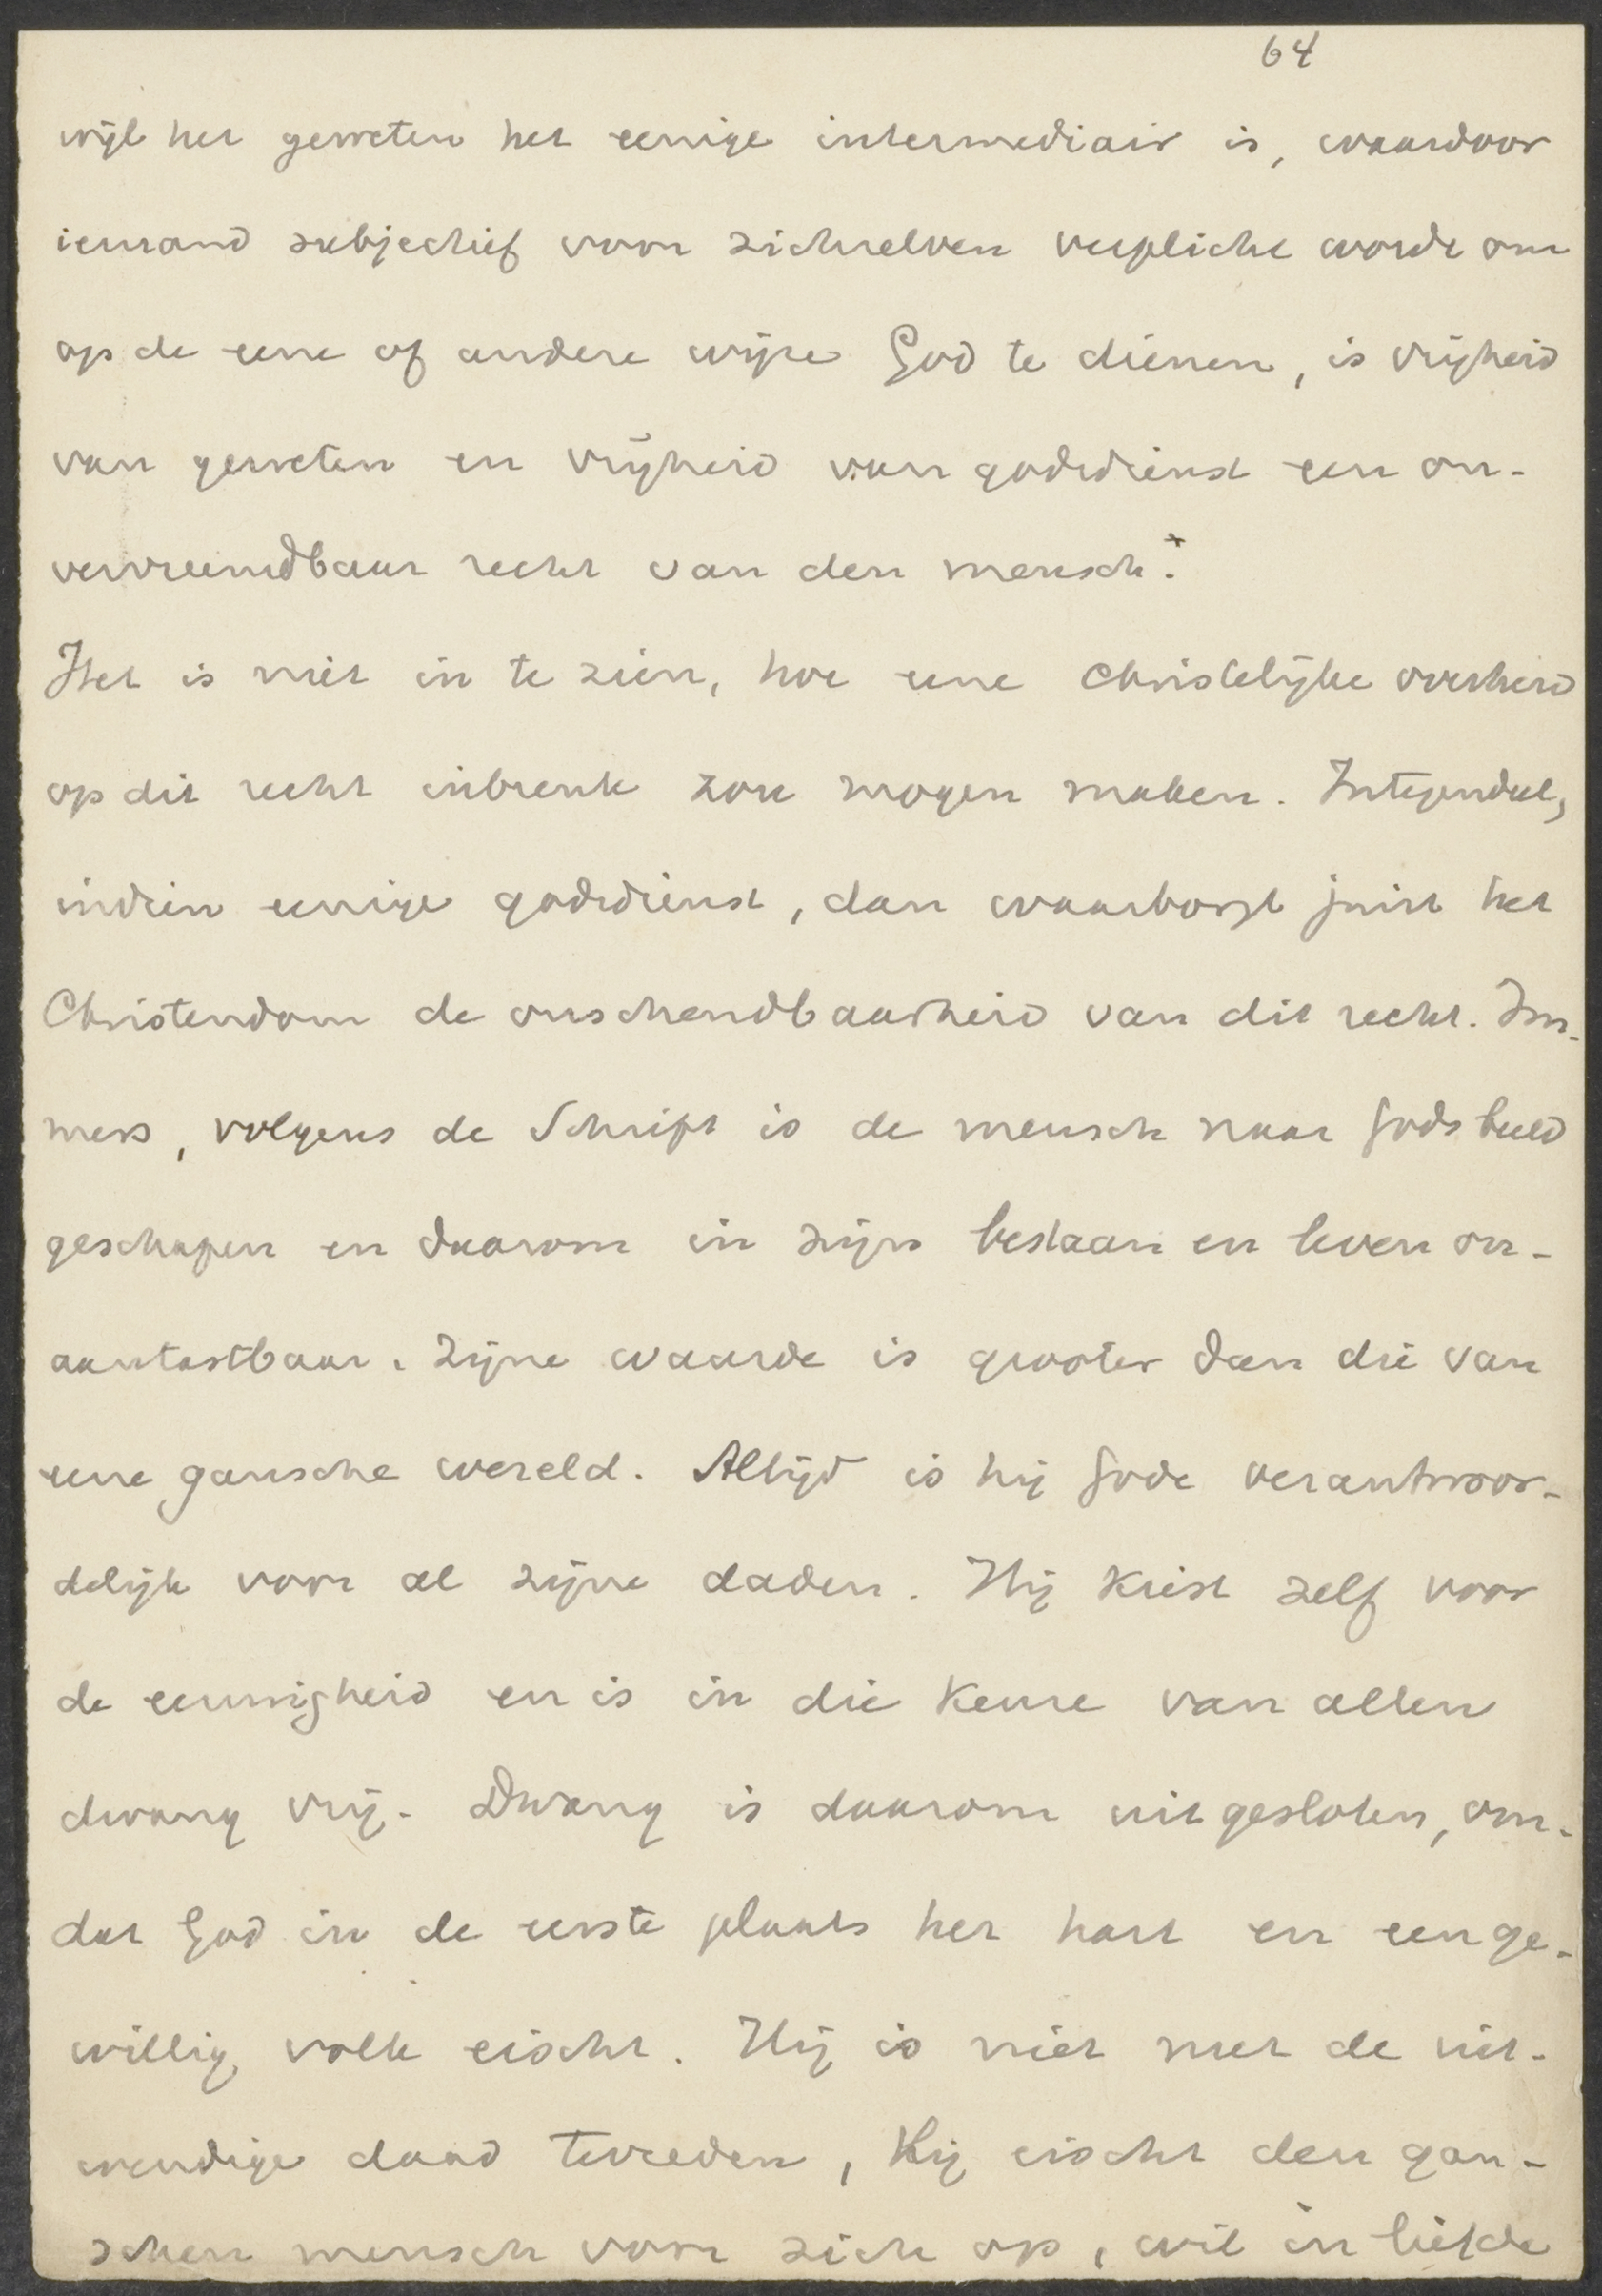 64
wijl het geweten het eenige intermediair is, waardoor
iemand subjectief voor zichzelven verplicht wordt om
op de eene of andere wijze God te dienen, is vrijheid
van geweten en vrijheid van godsdienst een on-
vervreemdbaar recht van den mensch.*
Het is niet in te zien, hoe eene Christelijke overheid
op dit recht inbreuk zou mogen maken. Integendeel,
indien eenige godsdienst, dan waarborgt juist het
Christendom de onschendbaarheid van dit recht. Im-
mers, volgens de Schrift is de mensch naar Gods beeld
geschapen en daarom in zijn bestaan en leven on-
aantastbaar. Zijne waarde is grooter dan die van
eene gansche wereld. Altijd is hij Gode verantwoor-
delijk voor al zijne daden. Hij kiest zelf voor
de eeuwigheid en is in die keuze van allen
dwang vrij. Dwang is daarom uitgesloten, om-
dat God in de eerste plaats het hart en een ge-
willig volk eischt. Hij is niet met de uit-
wendige daad tevreden, Hij eischt den gan-
schen mensch voor zich op, wil in liefde